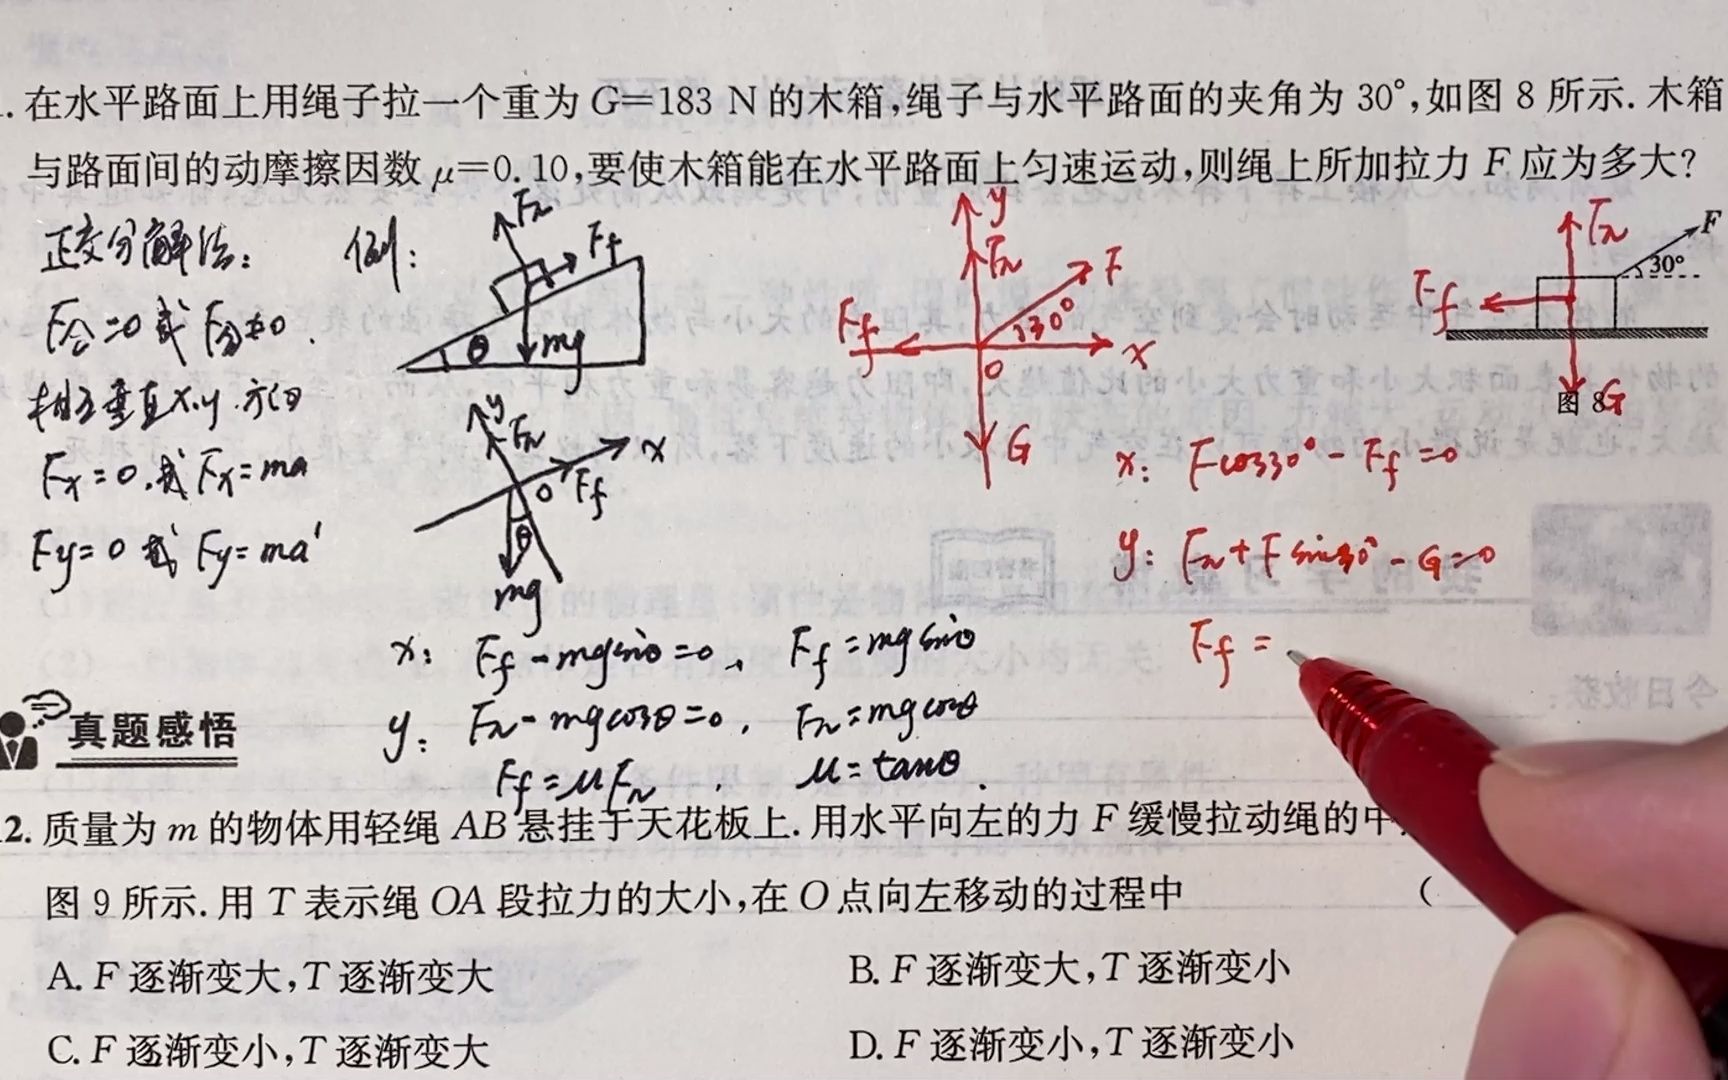 .在水平路面上用绳子拉一个重为 G=183 N 的木箱,绳子与水平路面的夹角为 30°,如图 8 所示.木箱
与路面间的动摩擦因数 μ=0.10,要使木箱能在水平路面上匀速运动,则绳上所加拉力 F 应为多大?
正交分解法: 例:
F合=0 或 F合≠0.
相互垂直x,y 方向
Fx=0.或 Fx=ma
Fy=0 或 Fy=ma'
FN
Ff
θ
mg
y
FN
x
O
Ff
θ
mg
x: Ff-mgsinθ=0, Ff=mgsinθ
y: FN-mgcosθ=0, FN=mgcosθ
Ff=μFN, μ=tanθ.
y
FN
F
30°
Ff
x
O
G
FN
F
30°
Ff
图 8
G
x: Fcos30°-Ff=0
y: FN+Fsin30°-G=0
Ff=
真题感悟
2.质量为 m 的物体用轻绳 AB 悬挂于天花板上.用水平向左的力 F 缓慢拉动绳的中
图 9 所示.用 T 表示绳 OA 段拉力的大小,在 O 点向左移动的过程中 (
A. F 逐渐变大,T 逐渐变大 B. F 逐渐变大,T 逐渐变小
C. F 逐渐变小,T 逐渐变大 D. F 逐渐变小,T 逐渐变小